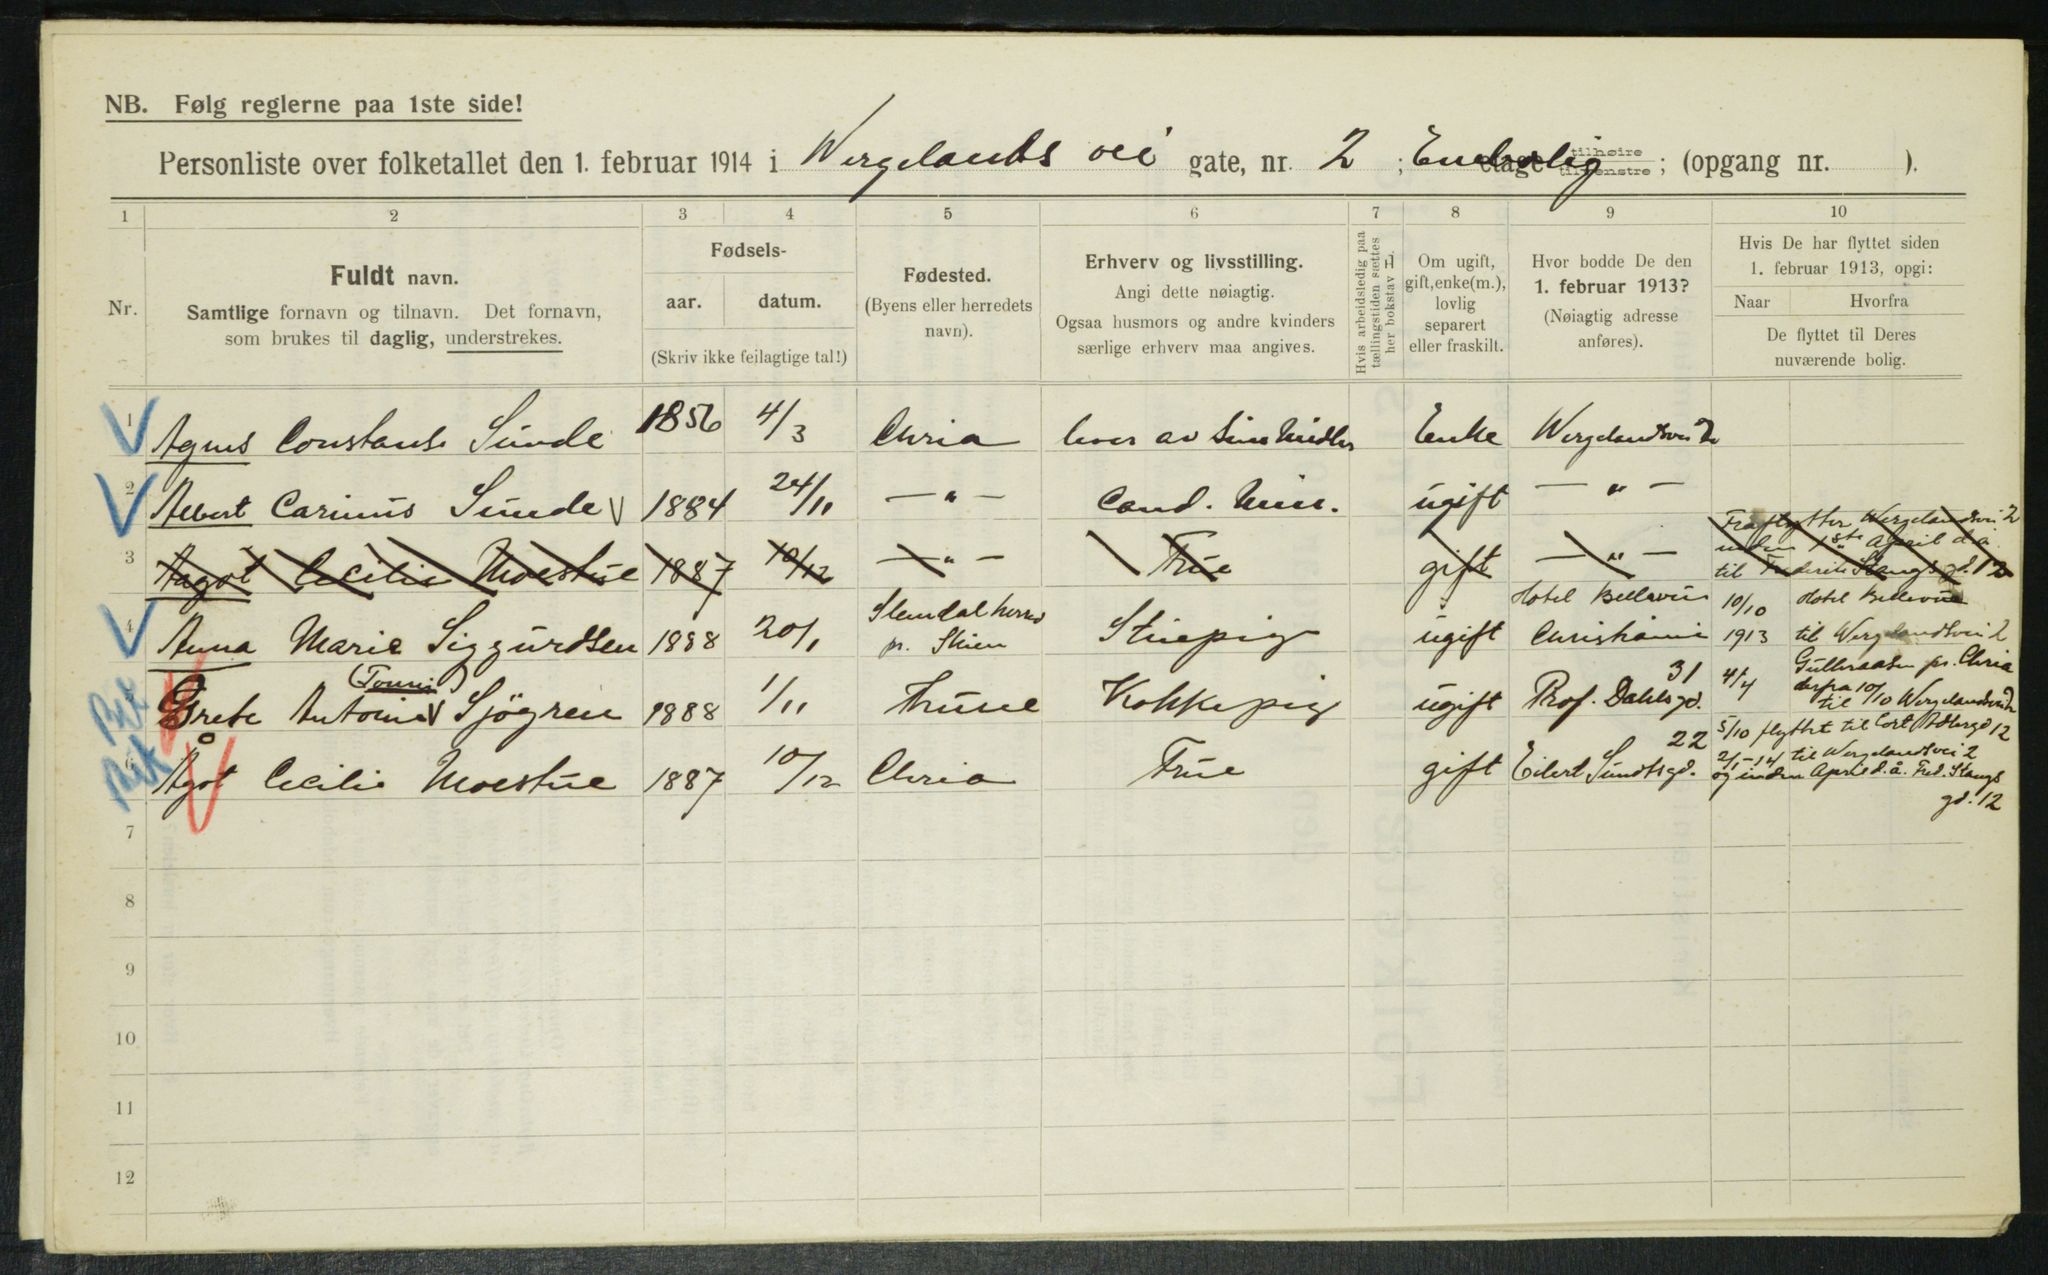 NB. Følg reglerne paa 1ste side!
Personliste over folketallet den 1. februar 1914 i Wergelands vei gate, nr. 2 ; Enebolig etage tilhøire tilvenstre ; (opgang nr. ).
1 2 3 4 5 6 7 8 9 10
Nr.
Fuldt navn.
Samtlige fornavn og tilnavn. Det fornavn,
som brukes til daglig, understrekes.
Fødsels-
aar. datum.
(Skriv ikke feilagtige tal!)
Fødested.
(Byens eller herredets
navn).
Erhverv og livsstilling.
Angi dette nøiagtig.
Ogsaa husmors og andre kvinders
særlige erhverv maa angives.
Hvis arbeidsledig paa
tællingstiden sættes
her bokstav L
Om ugift,
gift, enke(m.),
lovlig
separert
eller fraskilt.
Hvor bodde De den
1. februar 1913?
(Nøiagtig adresse
anføres).
Hvis De har flyttet siden
1. februar 1913, opgi:
Naar Hvorfra
De flyttet til Deres
nuværende bolig.
1 Agnes Constanse Sunde 1856 4/3 Chria lever av sine Midler Enke Wergelandsvei 2
2 Albert Carinus Sunde 1884 24/11 — " — Cand. Min. ugift — " —
3 Aagot Cecilie Moestue 1887 10/12 — " — Frue gift — " —
Fraflytter Wergelandsvei 2
inden 1ste April d.a.
til Frederik Stangs gd. 12
4 Anna Marie Siggurdsen 1888 20/1
Slemdal herred
pr. Skien
Stuepig ugift
Hotel Bellevue
Christiania
10/10
1913
Hotel Bellevue
til Wergelandsvei 2
5 Grete Antonie (Tonni) Sjögren 1888 1/11 Trune Kokkepig ugift
31
Prof. Dahls gd.
4/4 Gulleraasen pr. Chria
derfra 10/10 til Wergelandsvei 2
6 Ågot Cecilie Moestue 1887 10/12 Chria Frue gift
22
Eilert Sundts gd.
5/10 flyttet til Cort Adlersgd 12
2/1-14 til Wergelandsvei 2
og inden April d.å. Fred. Stangs
gd. 12
7
8
9
10
11
12